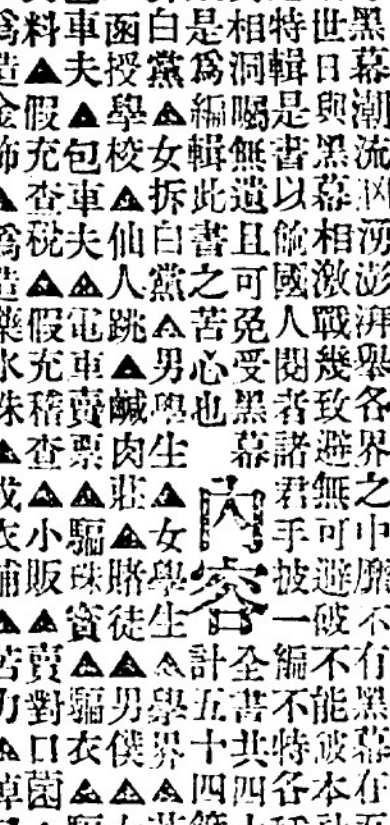 黑幕潮流洶湧澎湃舉各界之中靡不有黑幕在
世日與黑幕相激戰幾致避無可避破不能破本
特輯是書以餉國人閱者諸君手披一編不特各
相洞矚無遺且可免受黑幕 全書共四
是爲編輯此書之苦心也 內容 計五十四
白黨▲女拆白黨▲男學生▲女學生▲學界
函授學校▲仙人跳▲鹹肉莊▲賭徒▲男僕▲
車夫▲包車夫▲電車賣票▲騙珠寶▲騙衣▲
料▲假充查稅▲▲假充稽查▲▲小販▲賣對口菌